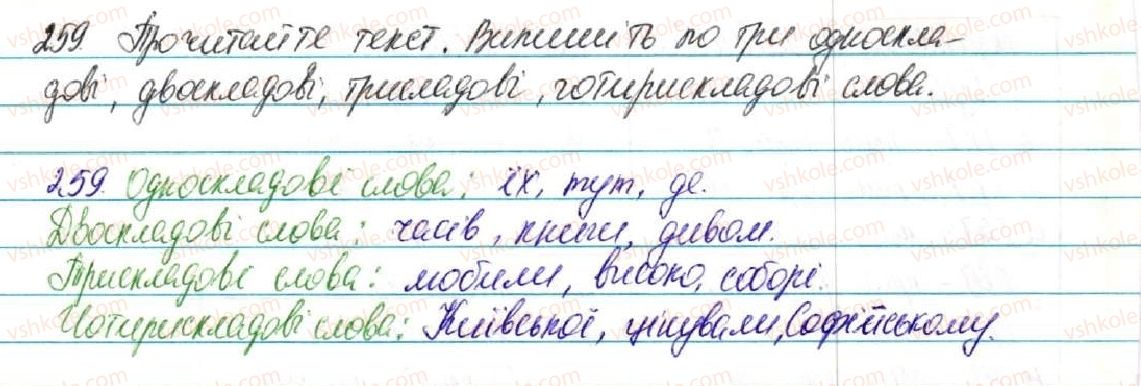 259. Прочитайте текст. Випишіть по три односкла-
дові, двоскладові, трискладові, чотирискладові слова.
259. Односкладові слова: їх, тут, де.
Двоскладові слова: часів, книги, дивом.
Трискладові слова: любили, високо, соборі.
Чотирискладові слова: Київської, цінували, Софійському.